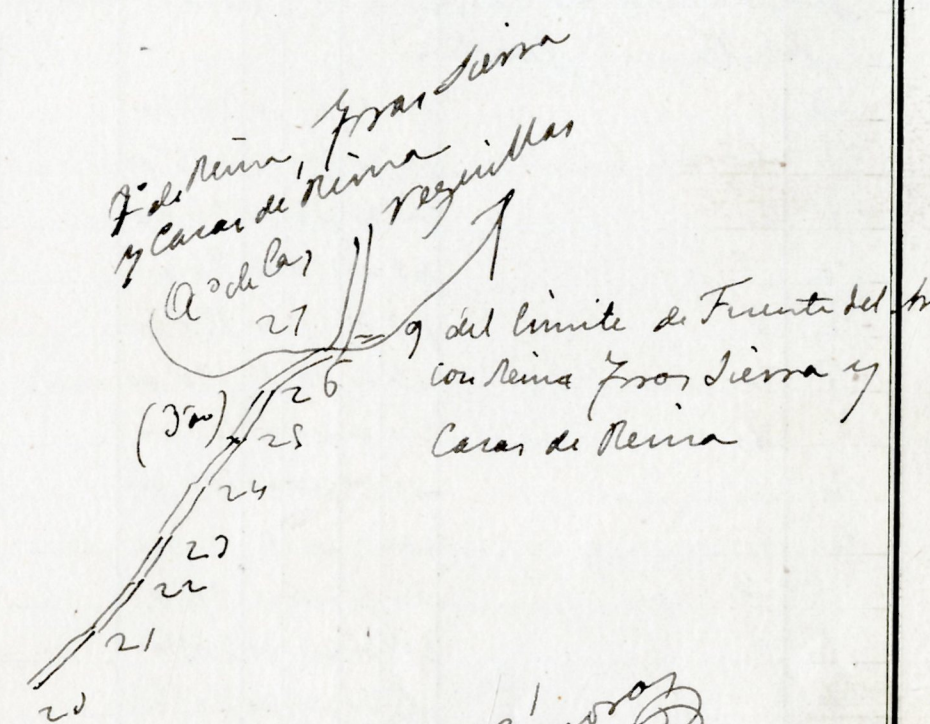 Tº de Reina, Trasierra
y Casas de Reina
(Aº de las Veguillas
27 = 9 del límite de Fuente del Ar
con Reina Trasierra y
Casas de Reina
26
(3m)
25
24
23
22
21
20